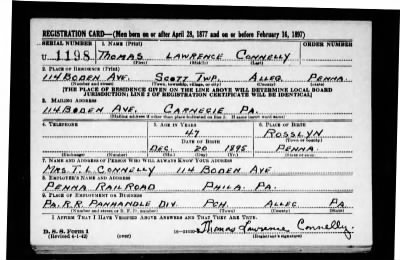 REGISTRATION CARD—(Men born on or after April 28, 1877 and on or before February 16, 1897)
SERIAL NUMBER 1. NAME (Print) ORDER NUMBER
U 1198 THOMAS LAWRENCE CONNELLY
(First) (Middle) (Last)
2. PLACE OF RESIDENCE (Print)
114 BODEN AVE. SCOTT TWP. ALLEG. PENNA.
(Number and street) (Town, township, village, or city) (County) (State)
[THE PLACE OF RESIDENCE GIVEN ON THE LINE ABOVE WILL DETERMINE LOCAL BOARD
JURISDICTION; LINE 2 OF REGISTRATION CERTIFICATE WILL BE IDENTICAL]
3. MAILING ADDRESS
114 BODEN AVE. CARNEGIE PA.
(Mailing address if other than place indicated on line 2. If same insert word same)
4. TELEPHONE 5. AGE IN YEARS 6. PLACE OF BIRTH
47 ROSSLYN
DATE OF BIRTH (Town or county)
DEC. 20 1895 PENNA
(Exchange) (Number) (Mo.) (Day) (Yr.) (State or country)
7. NAME AND ADDRESS OF PERSON WHO WILL ALWAYS KNOW YOUR ADDRESS
MRS. T. L. CONNELLY 114 BODEN AVE
8. EMPLOYER'S NAME AND ADDRESS
PENNA RAILROAD PHILA. PA.
9. PLACE OF EMPLOYMENT OR BUSINESS
PA. R.R. PANHANDLE DIV. PGH. ALLEG. PA.
(Number and street or R. F. D. number) (Town) (County) (State)
I AFFIRM THAT I HAVE VERIFIED ABOVE ANSWERS AND THAT THEY ARE TRUE.
D. S. S. Form 1 Thomas Lawrence Connelly.
(Revised 4-1-42) (over) (Registrant's signature)